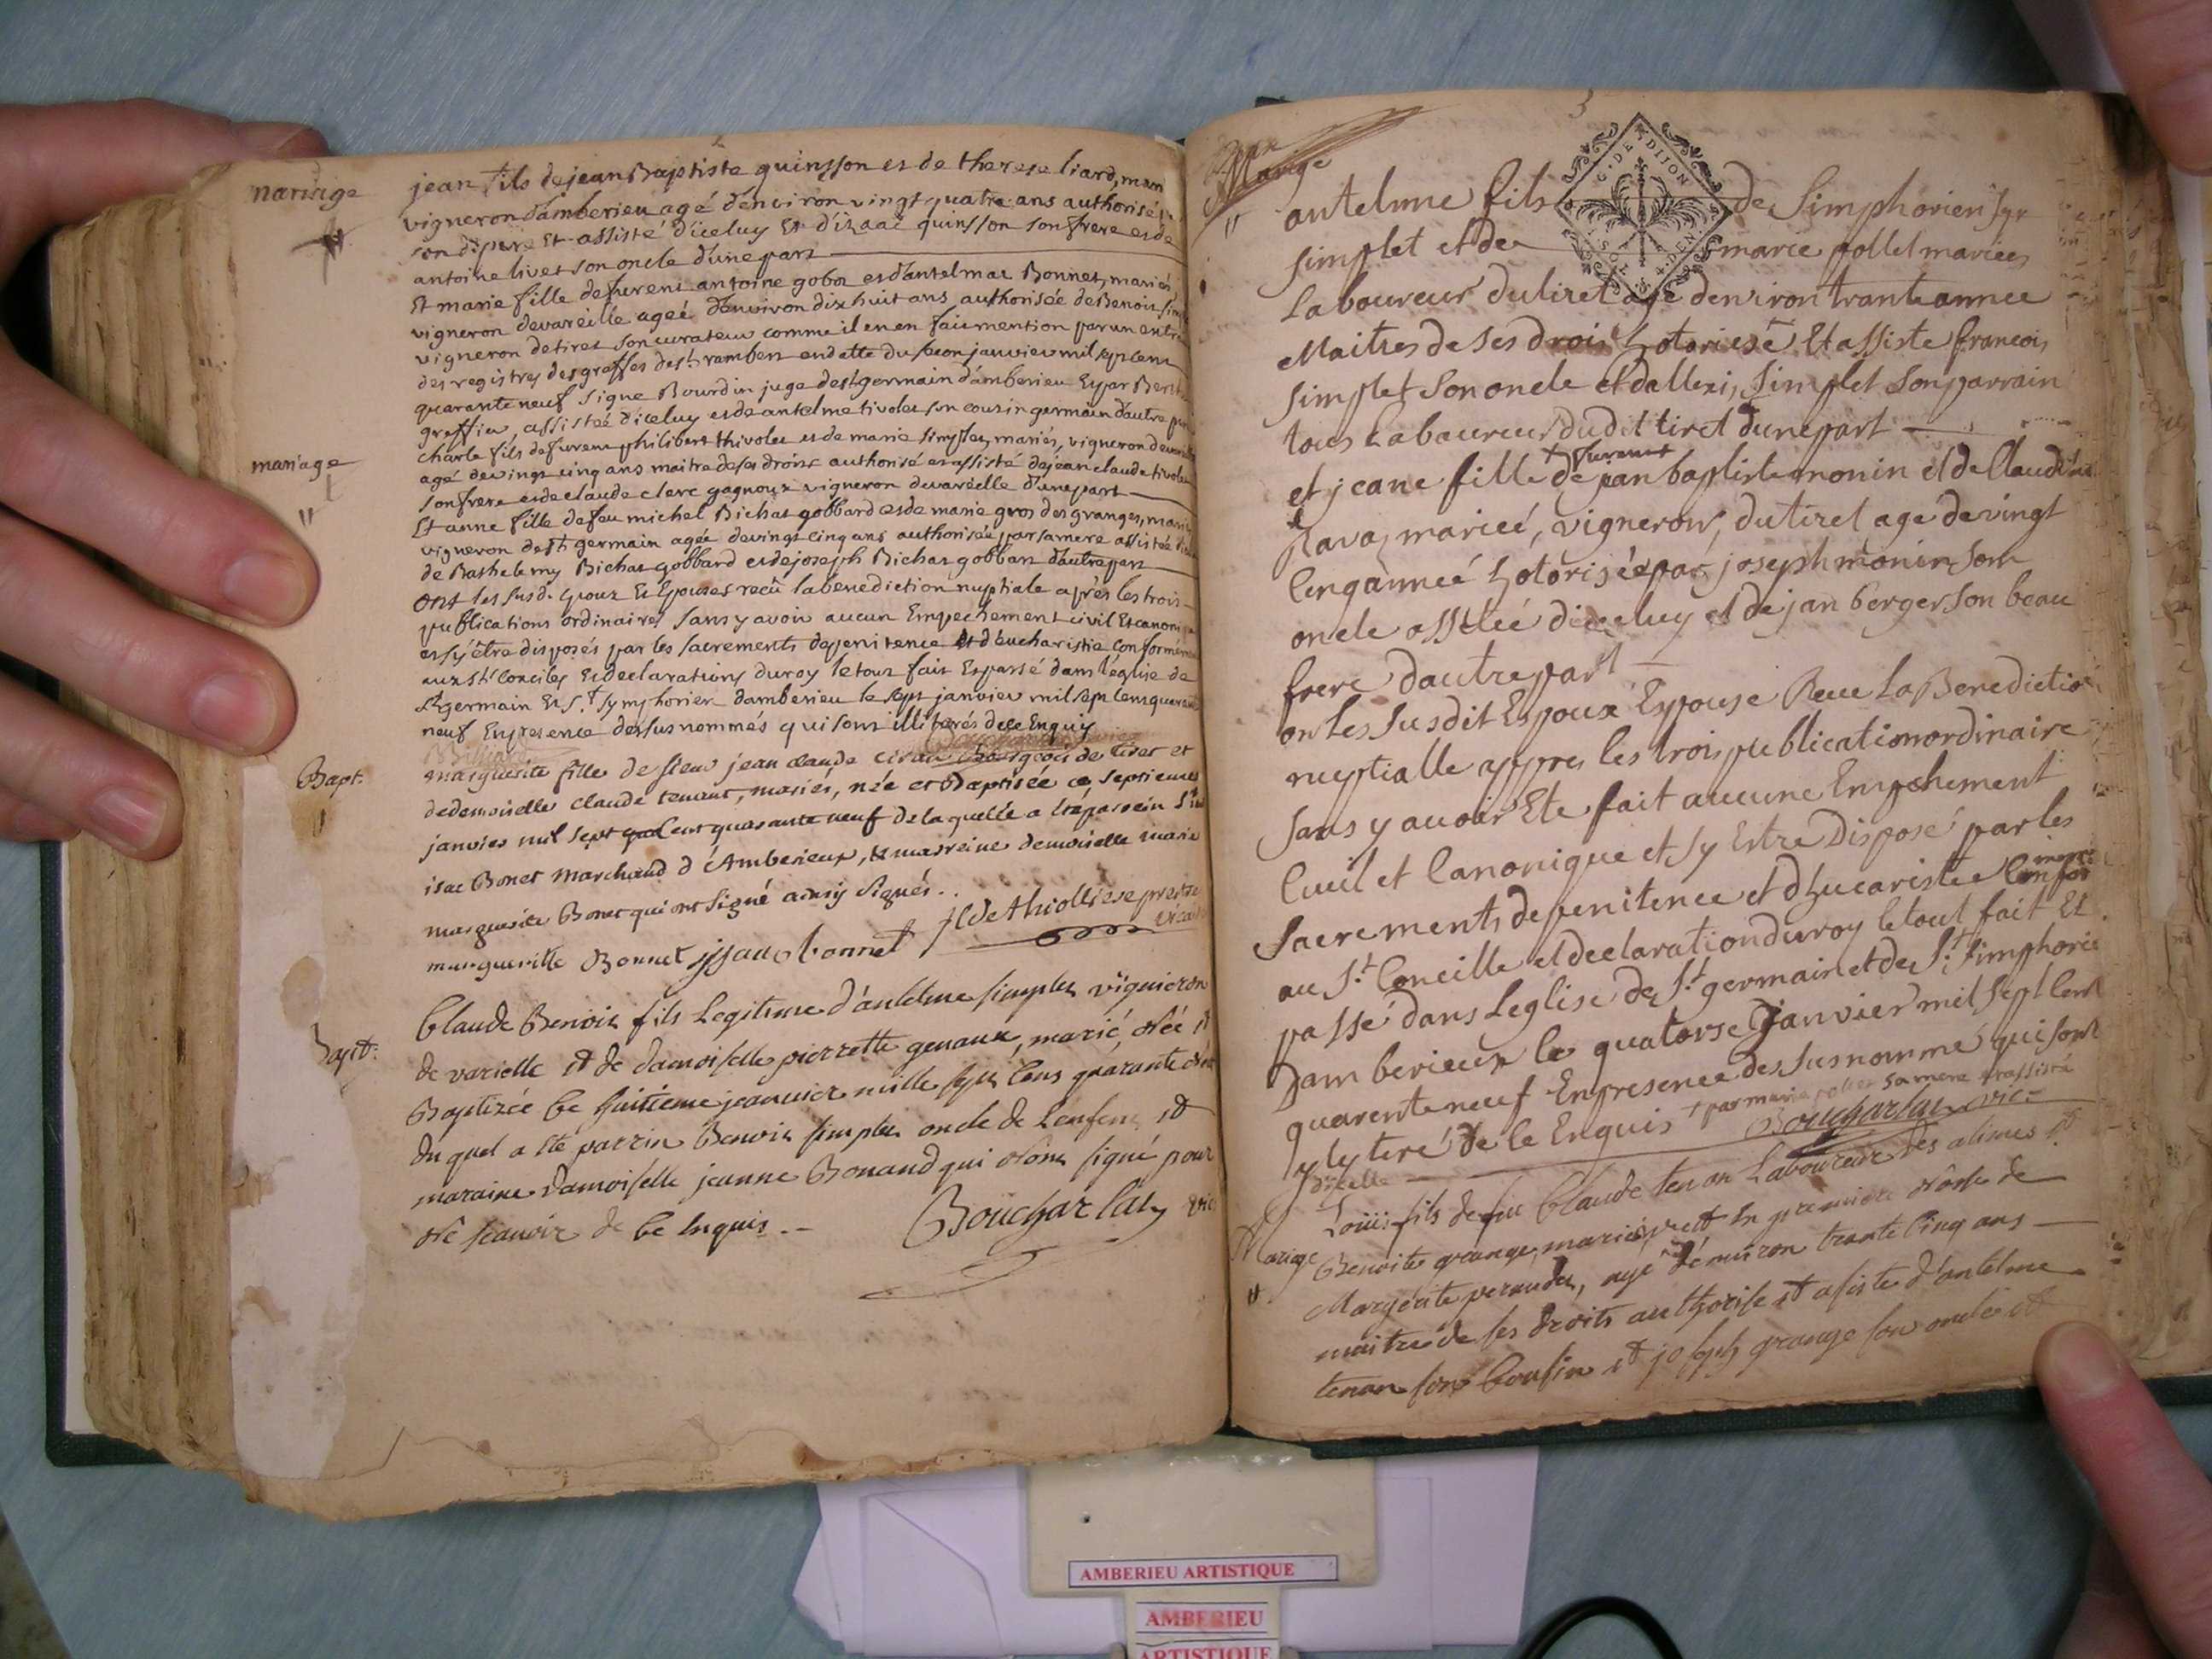 mariage
jean fils de jean Baptiste quinsson et de therese liard, mari
vigneron damberieu agé denviron vingt quatre ans authorisé
son dt pere Et assisté diceluy Et d'izaac quinsson son frere et de
antoine livet son oncle d'une part
Et marie fille defurent antoine gobet et d'antelmae Bonnet, mariés
vigneron devareille ageé d'environ dix huit ans authorisée de Benoit
vigneron detiret son curateur comme il en en fait mention par un
des registres des greffes de st rambert en datte du janvier mil sept cent
quarante neuf signe Bourdin juge de st germain damberieu Et par
greffier assisteé diceluy et de antelme tivolet son cousin germain d'autre part
mariage
charle fils defurent philibert thivolet et de marie simplet, mariés, vigneron de
agé devingt cinq ans maitre de ses droits authorisé et assisté de jean claude tivolet
son frere et de claude clerc gagnoux vigneron devareille d'une part
Et anne fille de feu michel Bichat gobbard et de marie gros des granges, mariés
vigneron de st germain ageé devingt cinq ans authoriseé par sa mere assistée
de Barthelemy Bichat gobbard et de joseph Bichat gobbart d'autre part
ont les susd. Epoux Et Epouses reçû la benediction nuptiale après les trois
publications ordinaires sans y avoir aucun Empechement civil Et canonique
et s'y être disposés par les sacrements de penitence Et d'eucharistie conformément
aux sts Conciles Et declarations du roy le tout fait Et passé dans l'église de
St germain Et St symphorien damberieu le sept janvier mil sept cent quarante
neuf En presence des susnommés qui sont illiterés de ce Enquis
Bapt.
marguerite fille de sieur jean claude bourgeois de tiret et
de demoiselle claude tenant, mariés, née et Baptisée ce septieme
janvier mil sept cent quarante neuf de laquelle a été parrein Sr
isac Bonet marchand d'Amberieux, & marreine demoiselle marie
marguerite Bonet qui ont signé ainsy signés..
margueritte Bonnet issaac bonnet dethiolliere prestre
vicaire
Bapt:
Claude Benoit fils Legitime d'antelme simplet vigneron
de varielle et de damoiselle pierrette genaux, marié, née et
Baptizée Ce huitieme jeanvier mille sept Cens quarante
du quel a Ete parrin Benoit simplet oncle de Lenfent et
maraine damoiselle jeanne Bonand qui n'ont signé pour
ne scauoir de Ce Enquis. Boucharlat vic
3
G. DE DIJON
SOLS 4. DEN.
Mariage
antelme fils de Simphorien
simplet et de marie pollet mariees
Laboureur dutiret age denviron trante annee
Maitres de ses droit hotorise Et assiste francois
simplet son oncle et dallexi, simplet son parrain
tous Laboureur dudit tiret dune part
et jeane fille de furent jean baptiste monin et de Claudine
ravaz marieé, vigneron, dutiret age devingt
Cenq anneé hotoriseé par joseph monin son
oncle assteé diceluy et de jan berger son beau
frere dautre part
on Les susdit Espoux Espouse Reeu La Benediction
nuptialle appres les trois publication ordinaire
sans y auoir Ete fait aucune Empechement
Ciuil et Canonique et sy Estre Disposé par les
Sacrements de penitence et dEucariste Confor
au St Conceille et declaration duroy le tout fait Et
passé dans Leglise de St germain et de St Simphorie
Damberieux le quatorse Janvier mil sept Cent
quarente neuf En presence des susnommé qui sont
ylytere de Ce Enquis + par marie pollet sa mere et assisté
dicelle Boucharlat vic
Mariage
Louis fils de feu Claude tenan Laboureur des alimes et
Benoite grange, mariés, veuf En premiere Nosse de
Margerite peraudet, agé d'enuiron trante Cinq ans
maitre de ses droits authorise et asiste d'antelme
tenan son Cousin et joseph grange son oncle et
AMBERIEU ARTISTIQUE
AMBERIEU
ARTISTIQUE